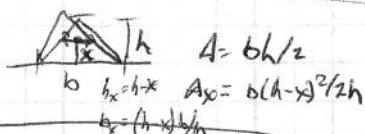 h
A = bh/2
x
b
hₓ = h-x
Aₓ = b(h-x)²/2h
bₓ = (h-x) b/h